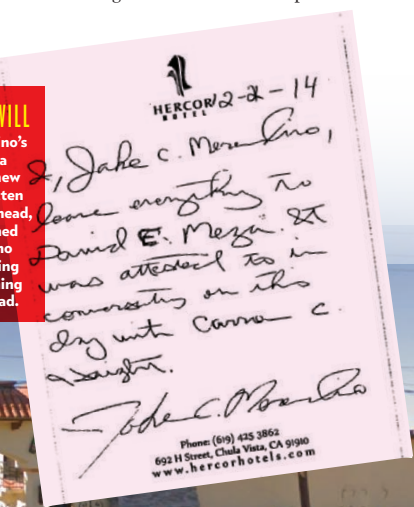 WILL
ino's
a
new
ten
head,
ned
no
ing
ning
ad.
HERCOR
HOTEL
12-2-14
I, Jake C. Merendino,
leave everything to
David E. Meza. It
was attested to in
conversation on this
day with
C.
Jake C. Merendino
Phone: (619) 425 3862
692 H Street, Chula Vista, CA 91910
www.hercorhotels.com